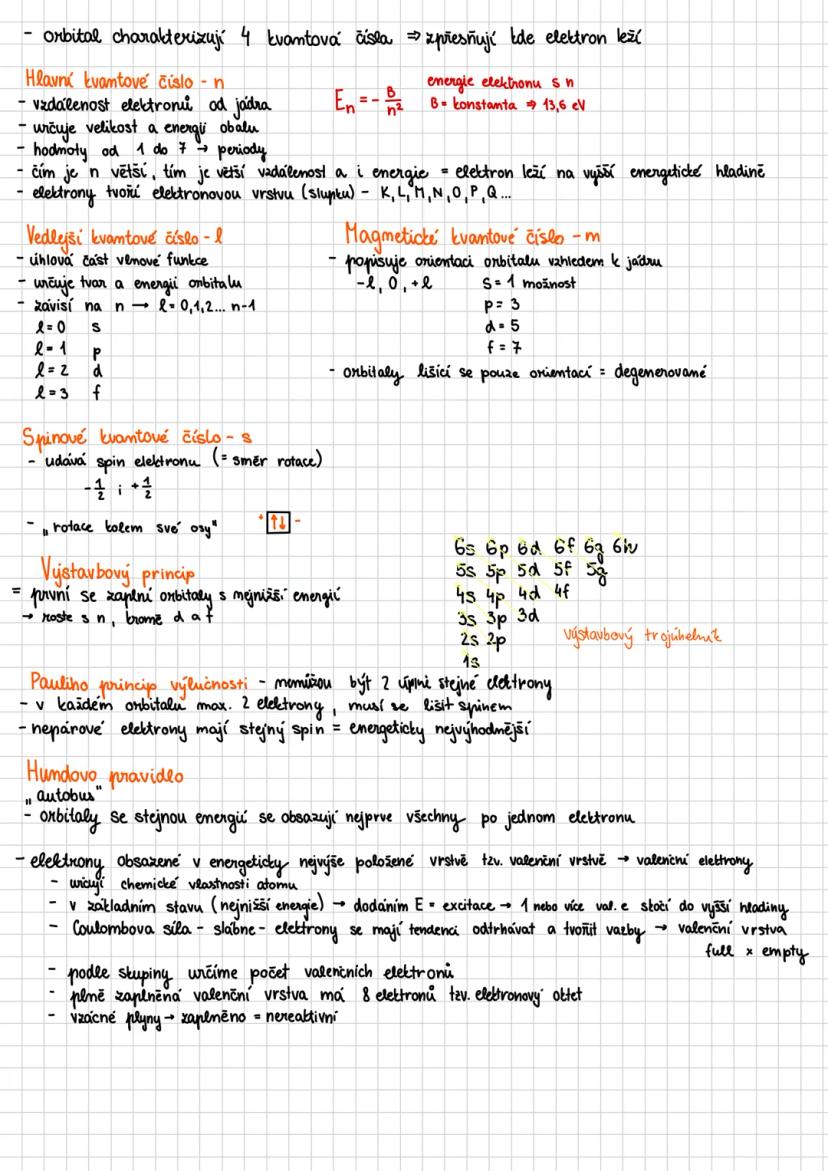 - orbital charakterizují 4 kvantová čísla ⇒ zpřesňují kde elektron leží
Hlavní kvantové číslo - n
- vzdálenost elektronů od jádra
- určuje velikost a energii obalu
- hodnoty od 1 do 7 → periody
E_n = - B/n²
energie elektronu s n
B = konstanta ⇒ 13,6 eV
- čím je n větší, tím je větší vzdálenost a i energie = elektron leží na vyšší energetické hladině
- elektrony tvoří elektronovou vrstvu (slupku) - K, L, M, N, O, P, Q ...
Vedlejší kvantové číslo - l
- úhlová část vlnové funkce
- určuje tvar a energii orbitalu
- závisí na n → l = 0,1,2... n-1
l = 0 s
l = 1 p
l = 2 d
l = 3 f
Magnetické kvantové číslo - m
- popisuje orientaci orbitalu vzhledem k jádru
-l, 0, +l s = 1 možnost
p = 3
d = 5
f = 7
- orbitaly lišící se pouze orientací = degenerované
Spinové kvantové číslo - s
- udává spin elektronu (= směr rotace)
-1/2 i +1/2
- „rotace kolem své osy" + ↑↓ -
Výstavbový princip
= první se zaplní orbitaly s nejnižší energií
→ roste s n, kromě d a f
6s 6p 6d 6f 6g 6h
5s 5p 5d 5f 5g
4s 4p 4d 4f
3s 3p 3d
2s 2p
1s
výstavbový trojúhelník
Pauliho princip výlučnosti - nemůžou být 2 úplně stejné elektrony
- v každém orbitalu max. 2 elektrony, musí se lišit spinem
- nepárové elektrony mají stejný spin = energeticky nejvýhodnější
Hundovo pravidlo
„autobus"
- orbitaly se stejnou energií se obsazují nejprve všechny po jednom elektronu
- elektrony obsazené v energeticky nejvýše položené vrstvě tzv. valenční vrstvě → valenční elektrony
- určují chemické vlastnosti atomu
- v základním stavu (nejnižší energie) → dodáním E = excitace → 1 nebo více val. e skočí do vyšší hladiny
- Coulombova síla - slábne - elektrony se mají tendenci odtrhávat a tvořit vazby → valenční vrstva
full x empty
- podle skupiny určíme počet valenčních elektronů
- plně zaplněná valenční vrstva má 8 elektronů tzv. elektronový oktet
- vzácné plyny → zaplněno = nereaktivní